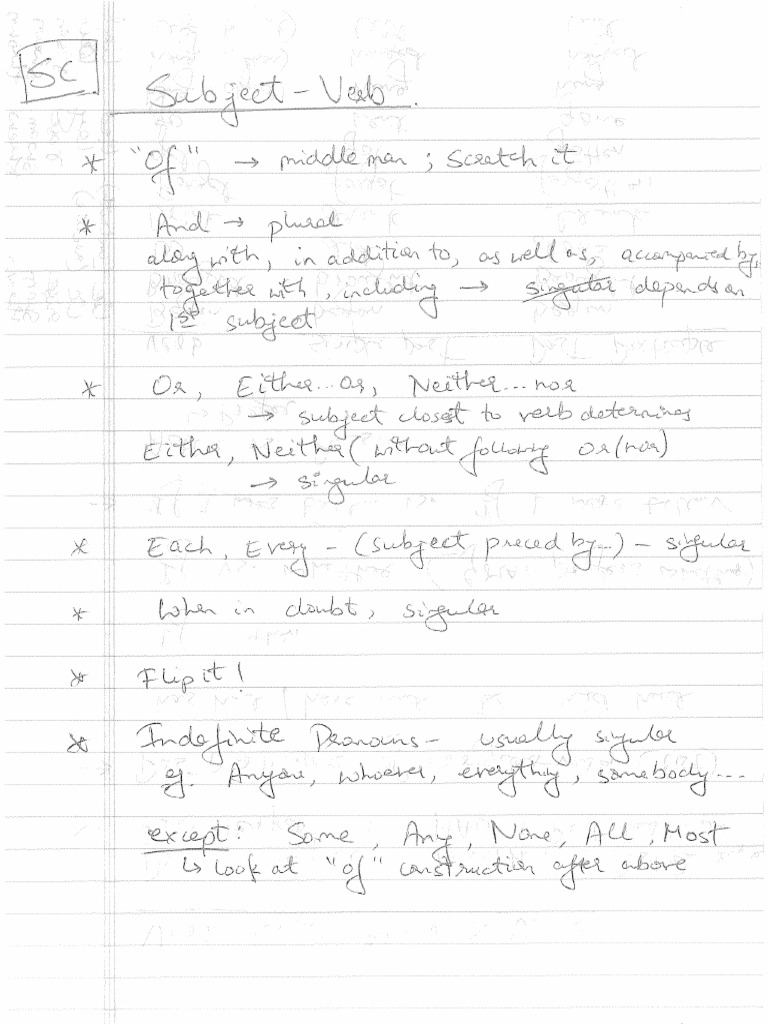 SC
Subject - Verb.
* "Of" → middle man ; scratch it
* And → plural
along with, in addition to, as well as, accompanied by,
together with, including → singular depends on
1st subject
* Or, Either...or, Neither...nor
→ subject closest to verb determines
Either, Neither ( without following or/nor)
→ singular
* Each, Every - (subject preced by...) - singular
* When in doubt, singular
* Flip it!
* Indefinite Pronouns - usually singular
eg. Anyone, whoever, everything, somebody...
except: Some, Any, None, All, Most
↳ look at "of" construction after above